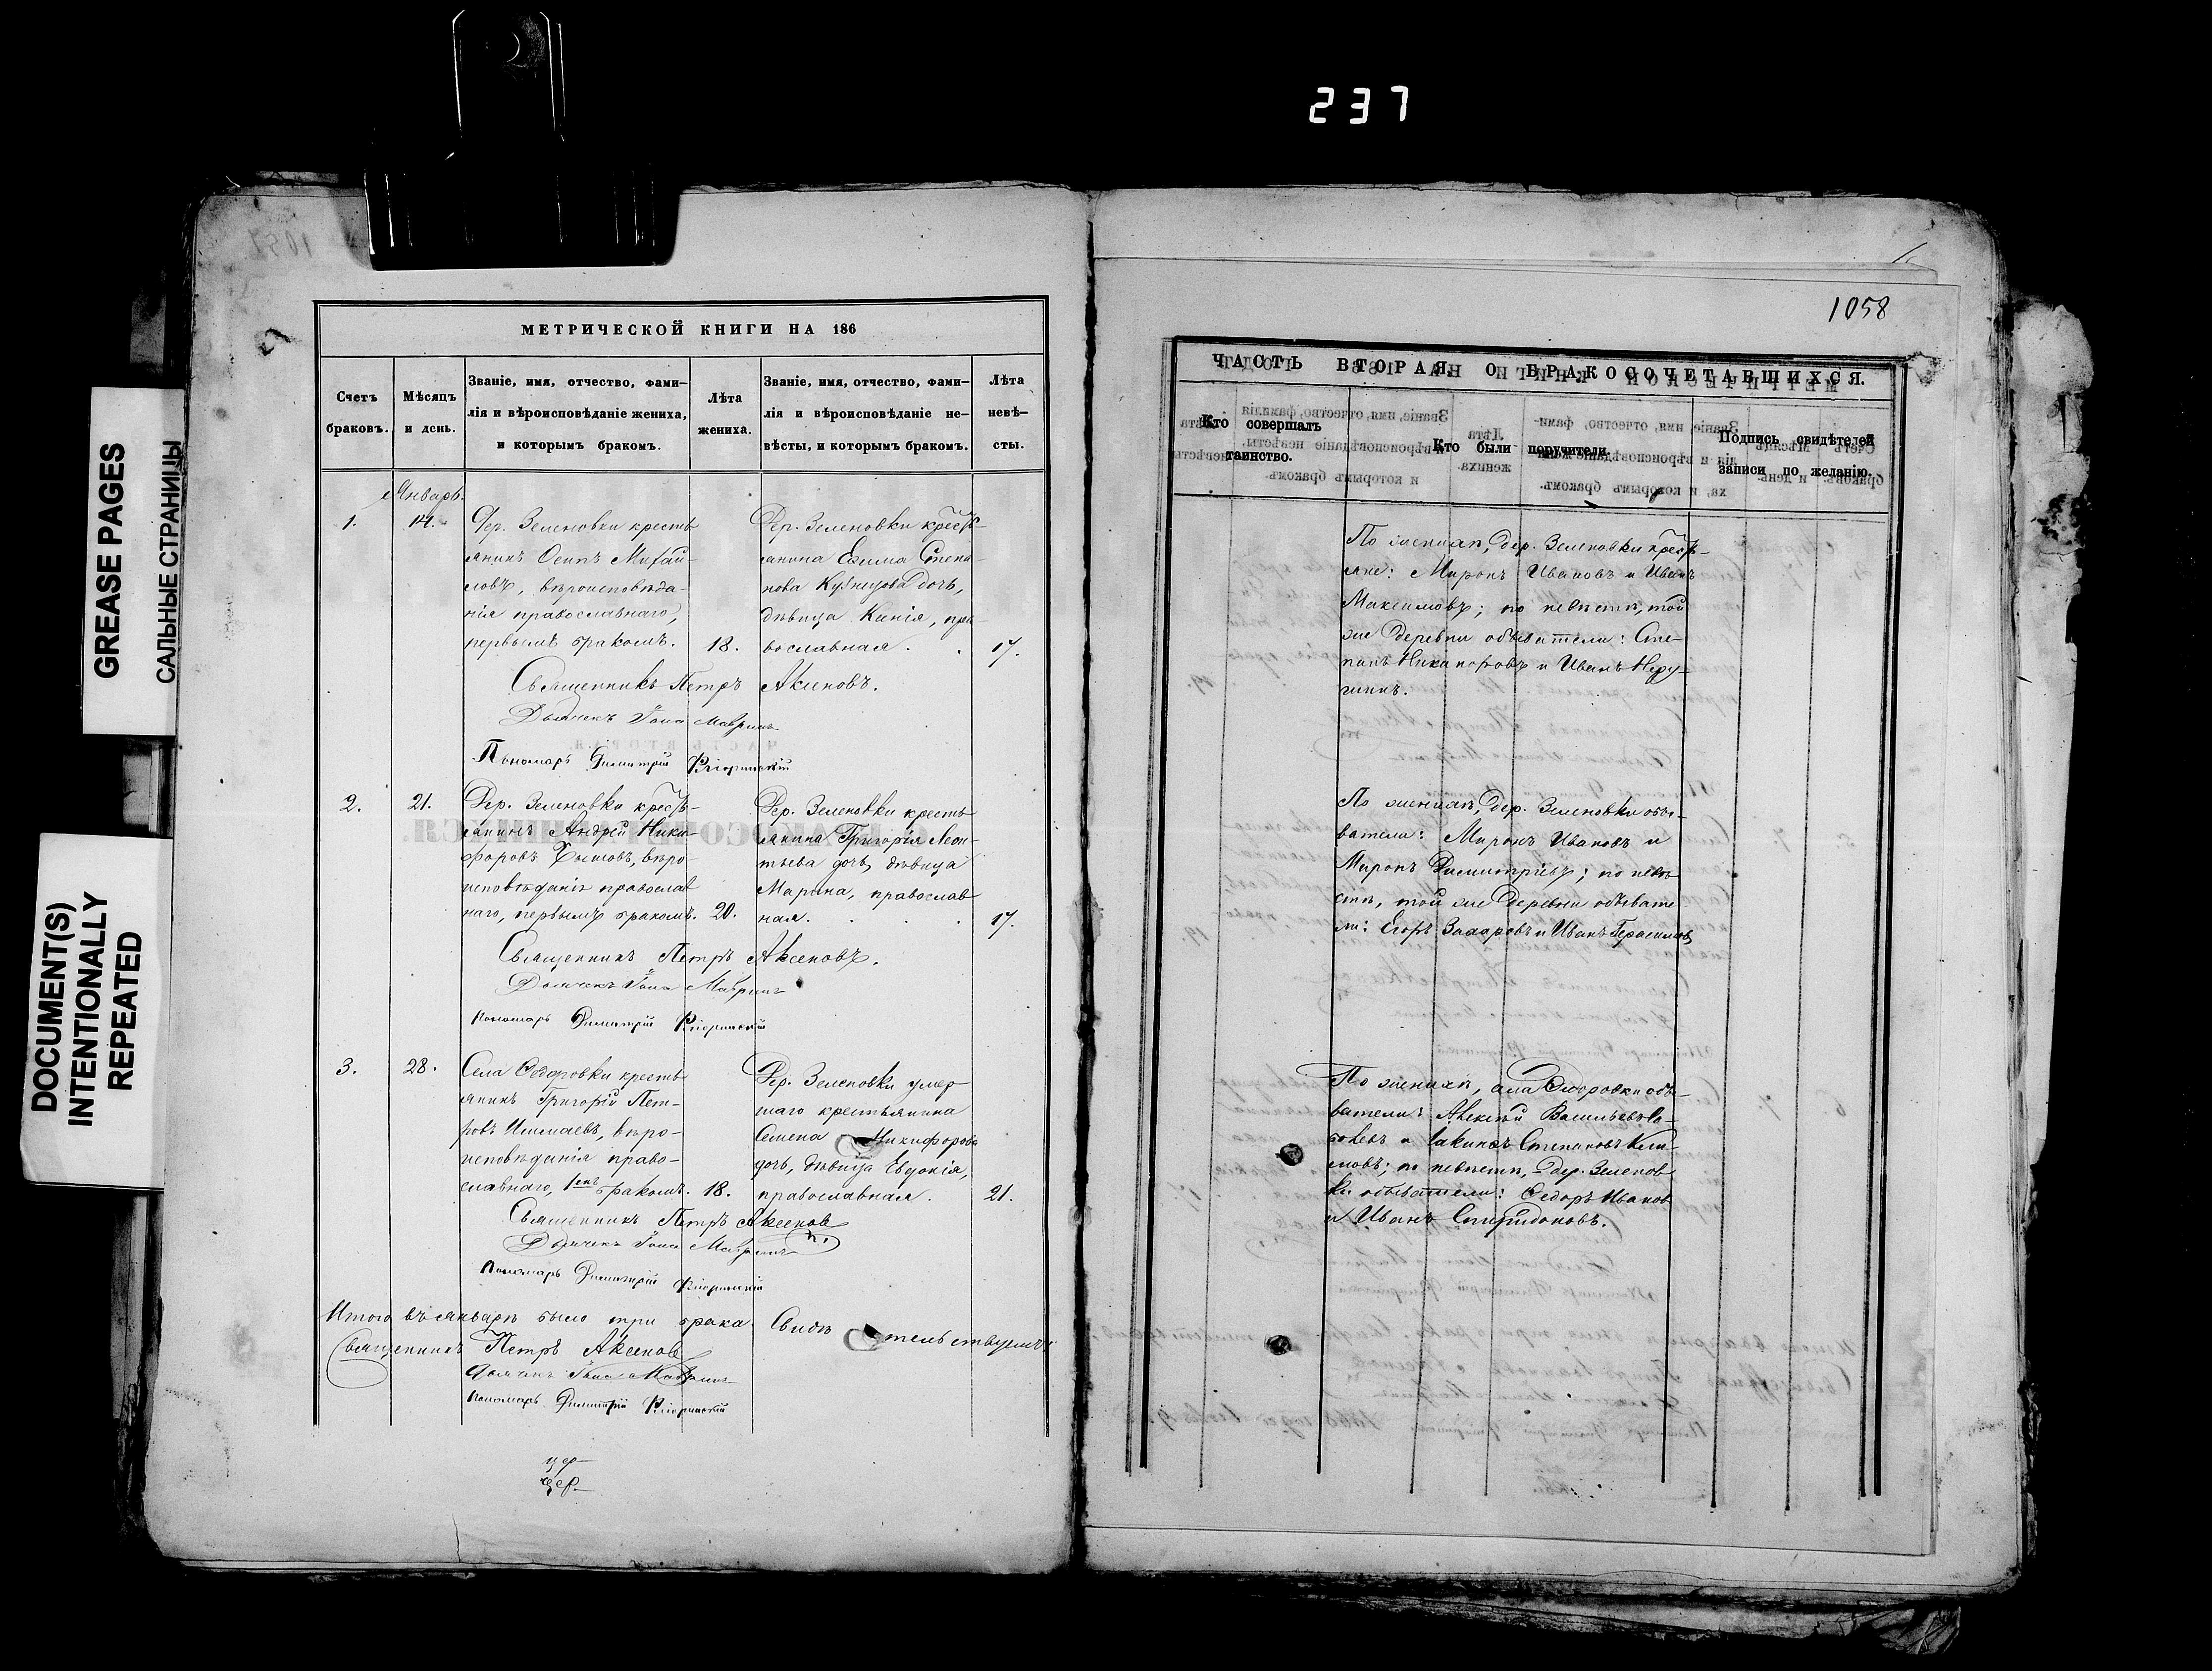 237
GREASE PAGES
САЛЬНЫЕ СТРАНИЦЫ
DOCUMENT(S)
INTENTIONALLY
REPEATED
МЕТРИЧЕСКОЙ КНИГИ НА 186
Счетъ
браковъ.
Мѣсяцъ
и день.
Званіе, имя, отчество, фами-
лія и вѣроисповѣданіе жениха,
и которымъ бракомъ.
Лѣта
жениха.
Званіе, имя, отчество, фами-
лія и вѣроисповѣданіе не-
вѣсты, и которымъ бракомъ.
Лѣта
невѣ-
сты.
Январь.
1.
14.
Дер. Зеленовки кресть
янинъ Осипъ Михай
ловъ, вѣроисповѣда-
нія православнаго,
первымъ бракомъ.
18.
Дер. Зеленовки кресть-
янина Ефима Степа-
нова Кузнецова дочь,
дѣвица Ксенія, пра-
вославная.
17.
Священникъ Петръ Аксеновъ.
Дьячекъ Іона Мавринъ
Пономарь Димитрій Фліоринскій
2.
21.
Дер. Зеленовки кресть-
янинъ Андрей Ники-
форовъ вѣро
исповѣданія православ
наго, первымъ бракомъ.
20.
Дер. Зеленовки кресть
янина Григорія Леон-
тьева дочь, дѣвица
Марина, православ
ная.
17.
Священникъ Петръ Аксеновъ.
Дьячекъ Іона Мавринъ
Пономарь Димитрій Фліоринскій
3.
28.
Села Ѳедоровки кресть
янинъ Григорій Пет-
ровъ вѣро-
исповѣданія право-
славнаго, 1емъ бракомъ.
18.
Дер. Зеленовки умер
шаго крестьянина
Семена Никифорова
дочь, дѣвица Евдокія,
православная.
21.
Священникъ Петръ Аксеновъ
Дьячекъ Іона Мавринъ
Пономарь Димитрій Фліоринскій
Итого въ январѣ было три брака. Свидѣтельствуемъ:
Священникъ Петръ Аксеновъ
Дьячекъ Іона Мавринъ
Пономарь Димитрій Фліоринскій
1058
ЧАСТЬ ВТОРАЯ, О БРАКОСОЧЕТАВШИХСЯ.
Кто совершалъ
таинство.
Кто были поручители.
Подпись свидѣтелей
записи по желанію.
По женихѣ, дер. Зеленовки кресть-
яне: Миронъ Ивановъ и Иванъ
Максимовъ; по невѣстѣ, той
же деревни обыватели: Сте-
панъ Никаноровъ и Иванъ

По женихѣ, дер. Зеленовки обы-
ватели: Миронъ Ивановъ и
Миронъ Димитріевъ; по невѣ-
стѣ, той же деревни обывате
ли: Егоръ Захаровъ и Иванъ Герасимовъ
По женихѣ, села Ѳедоровки обы-
ватели: Алексѣй Васильевъ
и Степановъ Кли-
мовъ; по невѣстѣ, дер. Зеленов
ки обыватели: Ѳедоръ Иванов
и Иванъ Спиридоновъ.